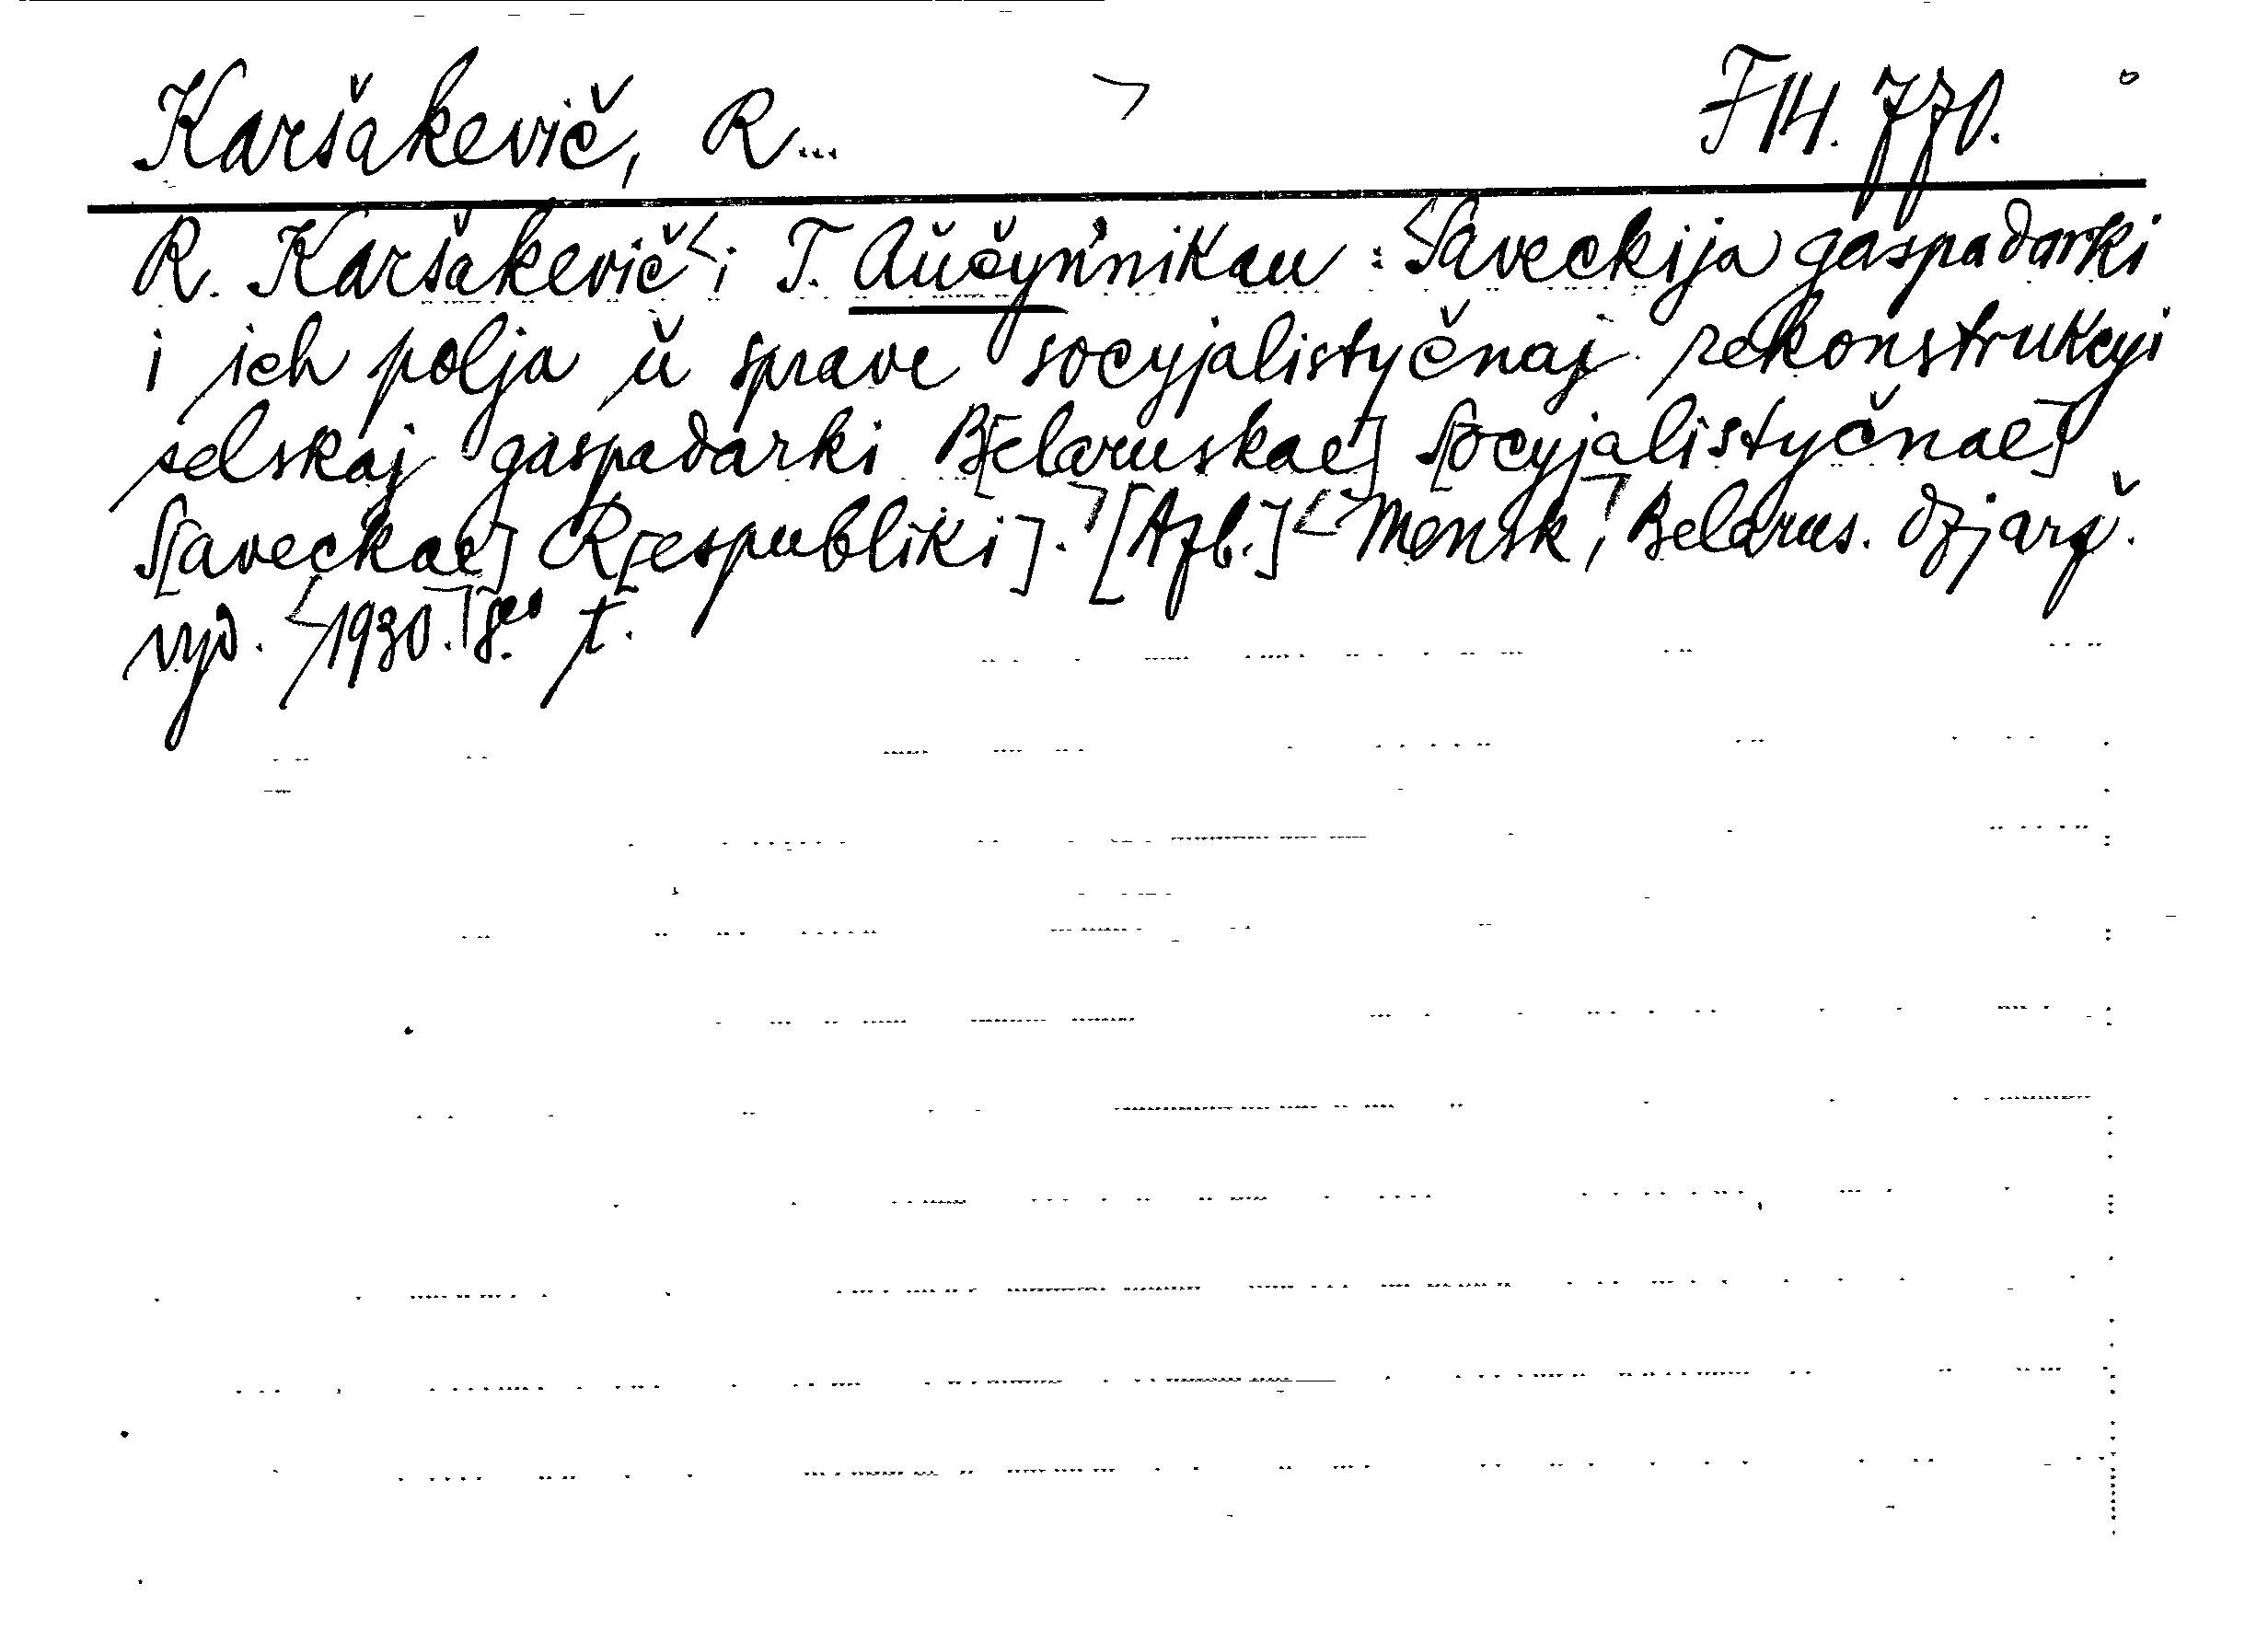 Karšakevič, R... F14.770.
R. Karšakevič i T. Aŭčyńnikau: Saveckija gaspadarki
i ich polja ŭ sprave socyjalistyčnaj rekonstrukcyi
selskaj gaspadarki B[elaruskae] S[ocyjalistyčnae]
S[aveckae] R[espubliki]. [Azb.] Mensk, Belarus. dzjarž.
vyd. 1930. 8° t.